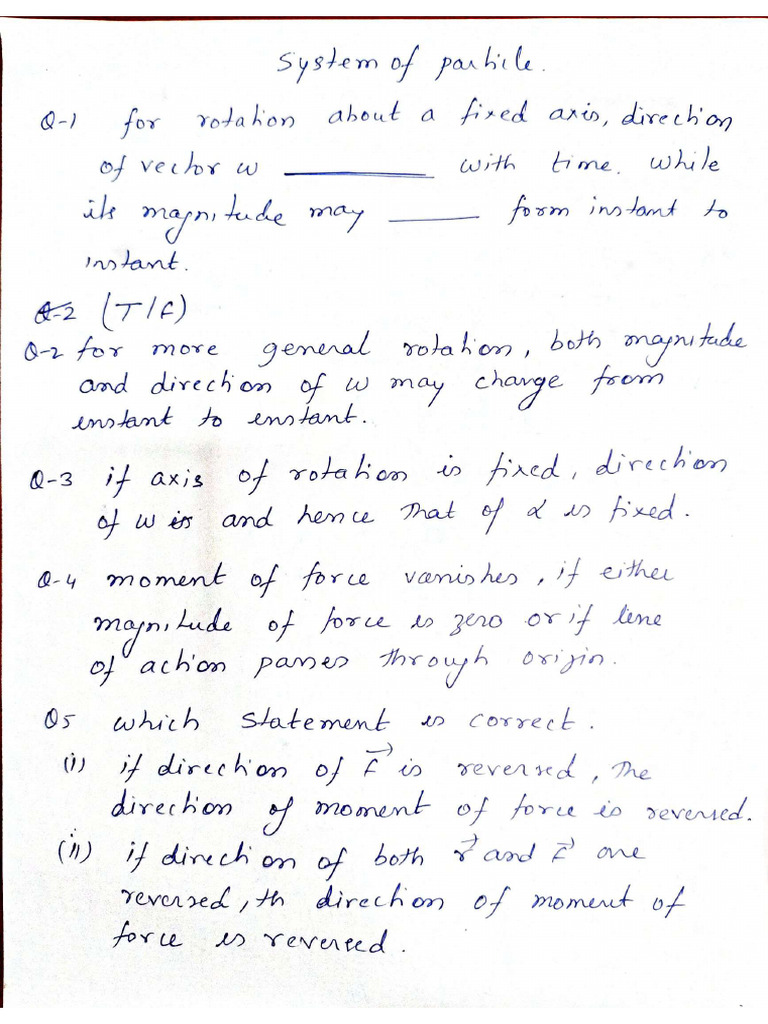 System of particle.
Q-1 for rotation about a fixed axis, direction
of vector w ________ with time. while
its magnitude may ______ form instant to
instant.
Q-2 (T/F)
Q-2 for more general rotation, both magnitude
and direction of w may change from
enstant to enstant.
Q-3 if axis of rotation is fixed, direction
of w is and hence that of α is fixed.
Q-4 moment of force vanishes, if either
magnitude of force is zero or if line
of action passes through origin.
Q5 which statement is correct.
(i) if direction of F⃗ is reversed, The
direction of moment of force is reversed.
(ii) if direction of both r⃗ and F⃗ are
reversed, th direction of moment of
force is reversed.